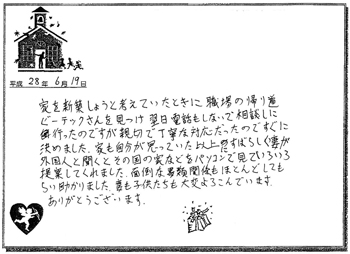 平成 28年 6月 19日
家を新築しようと考えていたときに 職場の帰り道
ビーテックさんを見つけ 翌日電話もしないで相談しに
行ったのですが親切で丁寧な対応だったのですぐに
決めました。家も自分が思っていた以上にすばらしく妻が
外国人と聞くとその国の家などをパソコンで見ていろいろ
提案してくれました。面倒な書類関係もほとんどしても
らい助かりました。妻も子供たちも大変よろこんでいます。
ありがとうございます。